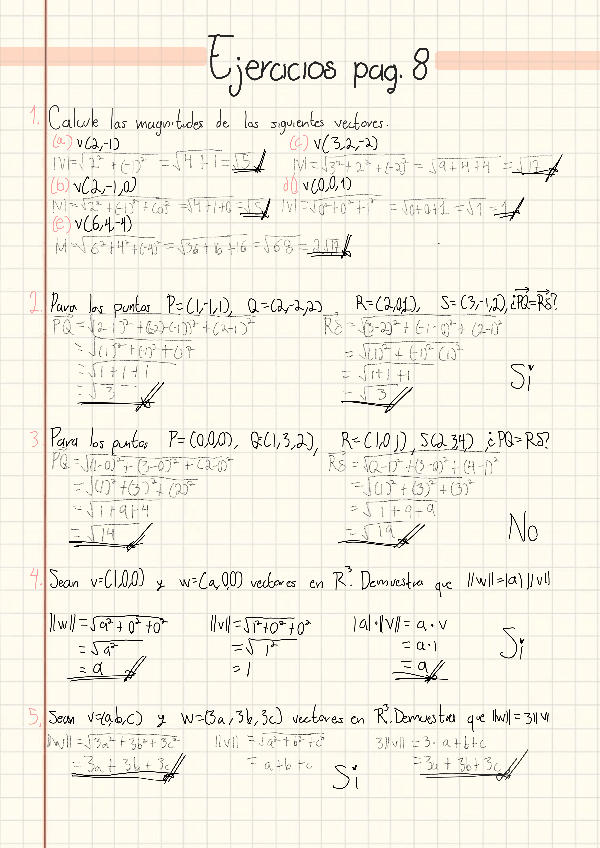 Ejercicios pag. 8
1. Calcule las magnitudes de los siguientes vectores.
(a) v(2,-1) (c) v(3,2,-2)
|v|=√2²+(-1)² = √4+1 = √5 |v|=√3²+2²+(-2)² = √9+4+4 = √17
(b) v(2,-1,0) d) v(0,0,1)
|v|=√2²+(-1)²+(0)² = √4+1+0 = √5 |v|=√0²+0²+1² = √0+0+1 = √1 = 1
(e) v(6,4,-4)
|v|=√6²+4²+(-4)² = √36+16+16 = √68 = 2√17
2. Para los puntos P=(1,-1,1), Q=(2,-2,2) R=(2,0,1), S=(3,-1,2), ¿PQ=RS?
PQ=√(2-1)²+((-2)-(-1))²+(2-1)² RS=√(3-2)²+(-1-0)²+(2-1)²
=√(1)²+(-1)²+(1)² =√(1)²+(-1)²(1)²
=√1+1+1 =√1+1+1 Si
=√3 =√3
3 Para los puntos P=(0,0,0), Q=(1,3,2), R=(1,0,1), S(2,3,4) ¿PQ=RS?
PQ=√(1-0)²+(3-0)²+(2-0)² RS=√(2-1)²+(3-0)²+(4-1)²
=√(1)²+(3)²+(2)² =√(1)²+(3)²+(3)²
=√1+9+4 =√1+9+9 No
=√14 =√19
4. Sean v=(1,0,0) y w=(a,0,0) vectores en R³. Demuestra que ||w||=|a| ||v||
||w||=√a²+0²+0² ||v||=√1²+0²+0² |a|·||v||= a·v
=√a² =√1² = a·1 Si
= a = 1 = a
5. Sean v=(a,b,c) y w=(3a,3b,3c) vectores en R³. Demuestra que ||w||=3||v||
||w||=√3a²+3b²+3c² ||v||=√a²+b²+c² 3||v||=3·a+b+c
=3a+3b+3c = a+b+c Si =3a+3b+3c